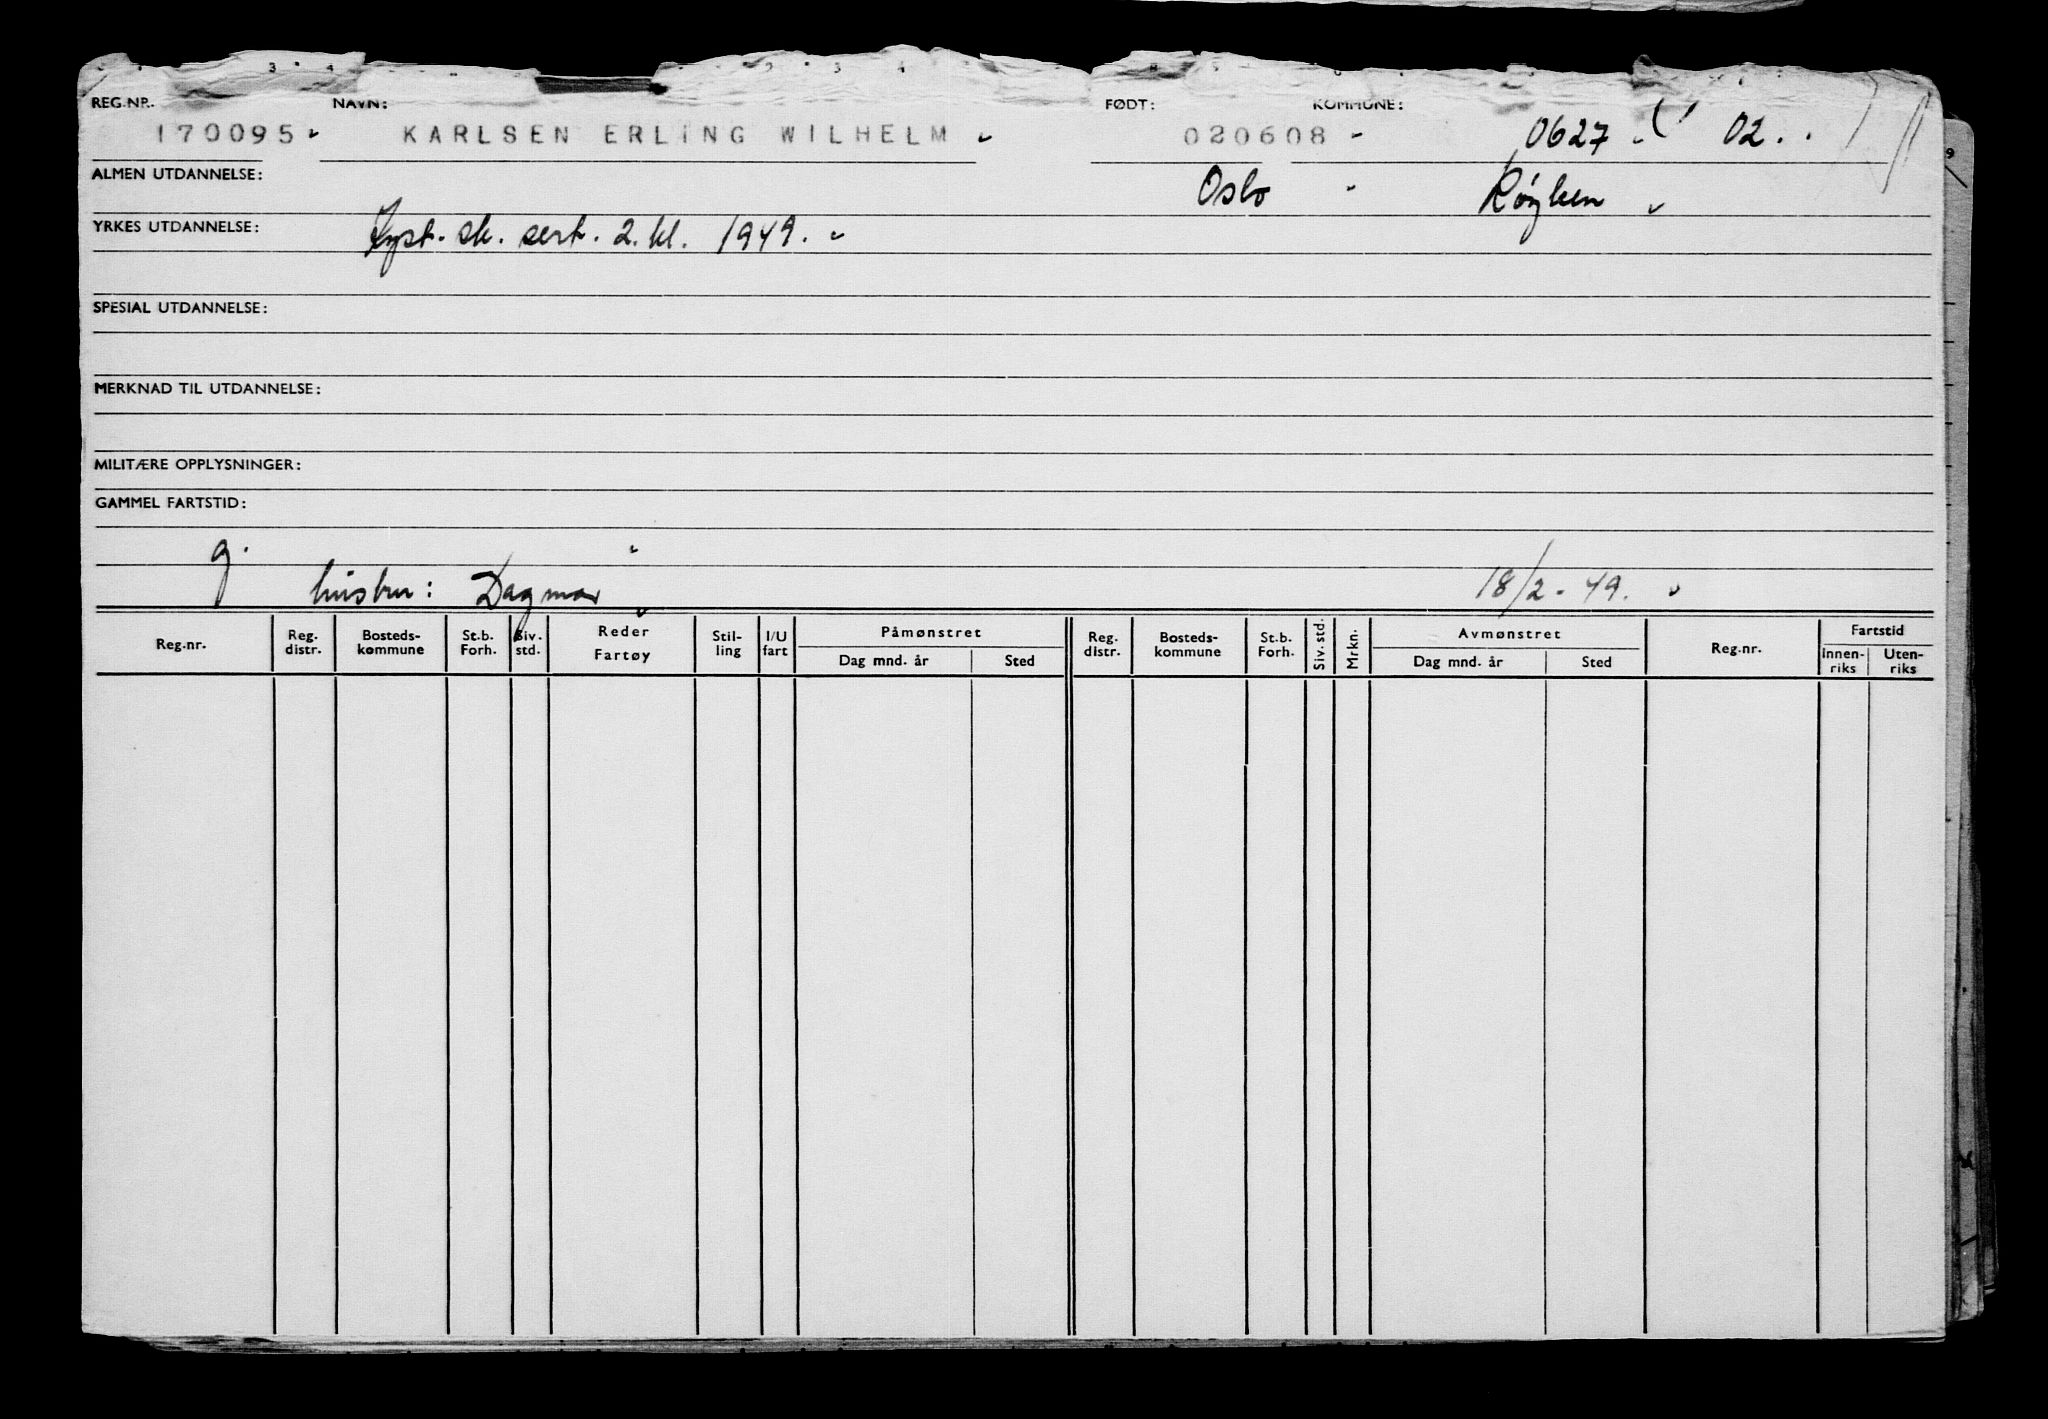 REG.NR. NAVN: FØDT: KOMMUNE:
170095 KARLSEN ERLING WILHELM 020608 0627 02.
ALMEN UTDANNELSE: Oslo Røyken
YRKES UTDANNELSE: Kyst. sk. sert. 2. kl. 1949.
SPESIAL UTDANNELSE:
MERKNAD TIL UTDANNELSE:
MILITÆRE OPPLYSNINGER:
GAMMEL FARTSTID:
g.
hustru: Dagmar 18/2-49.
Reg.nr. Reg. distr. Bosteds-kommune St.b. Forh. Siv. std. Reder Fartøy Stil-ling I/U fart Påmønstret Dag mnd. år Sted Reg. distr. Bosteds-kommune St.b. Forh. Siv. std. Mrkn. Avmønstret Dag mnd. år Sted Reg.nr. Fartstid Innen-riks Uten-riks